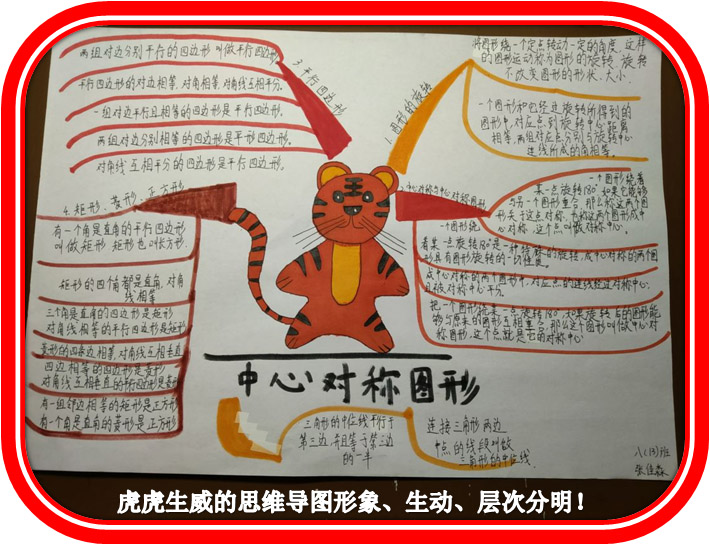 两组对边分别平行的四边形叫做平行四边形.
平行四边形的对边相等,对角相等,对角线互相平分.
一组对边平行且相等的四边形是平行四边形.
两组对边分别相等的四边形是平形四边形.
对角线互相平分的四边形是平行四边形.
3.平行四边形
1.图形的旋转
将图形绕一个定点转动一定的角度,这样
的图形运动称为图形的旋转,旋转
不改变图形的形状、大小.
一个图形和它经过旋转所得到的
图形中,对应点到旋转中心距离
相等,两组对应点分别与旋转中心
连线所成的角相等.
4.矩形、菱形、正方形
有一个角是直角的平行四边形
叫做矩形 矩形也叫长方形.
矩形的四个角都是直角,对角
线相等
三个角是直角的四边形是矩形
对角线相等的平行四边形是矩形
菱形的四条边相等,对角线互相垂直
四边相等的四边形是菱形
对角线互相垂直的平行四边形是菱形
有一组邻边相等的矩形是正方形
有一个角是直角的菱形是正方形
2.中心对称与中心对称图形
一个图形绕着
某一点旋转180°如果它能够
与另一个图形重合,那么称这两个图
形关于这点对称,也称这两个图形成中
心对称,这个点叫做对称中心.
一个图形绕
着某一点旋转180°是一种特殊的旋转,成中心对称的两个图
形具有图形旋转的一切性质.
成中心对称的两个图形中,对应点的连线经过对称中心,
且被对称中心平分.
把一个图形绕某一点旋转180°,如果旋转后的图形能
够与原来的图形互相重合,那么这个图形叫做中心对
称图形,这个点就是它的对称中心
中心对称图形
三角形的中位线平行于
第三边,并且等于第三边
的一半
连接三角形两边
中点的线段叫做
三角形的中位线.
八(13)班
张佳森
虎虎生威的思维导图形象、生动、层次分明！